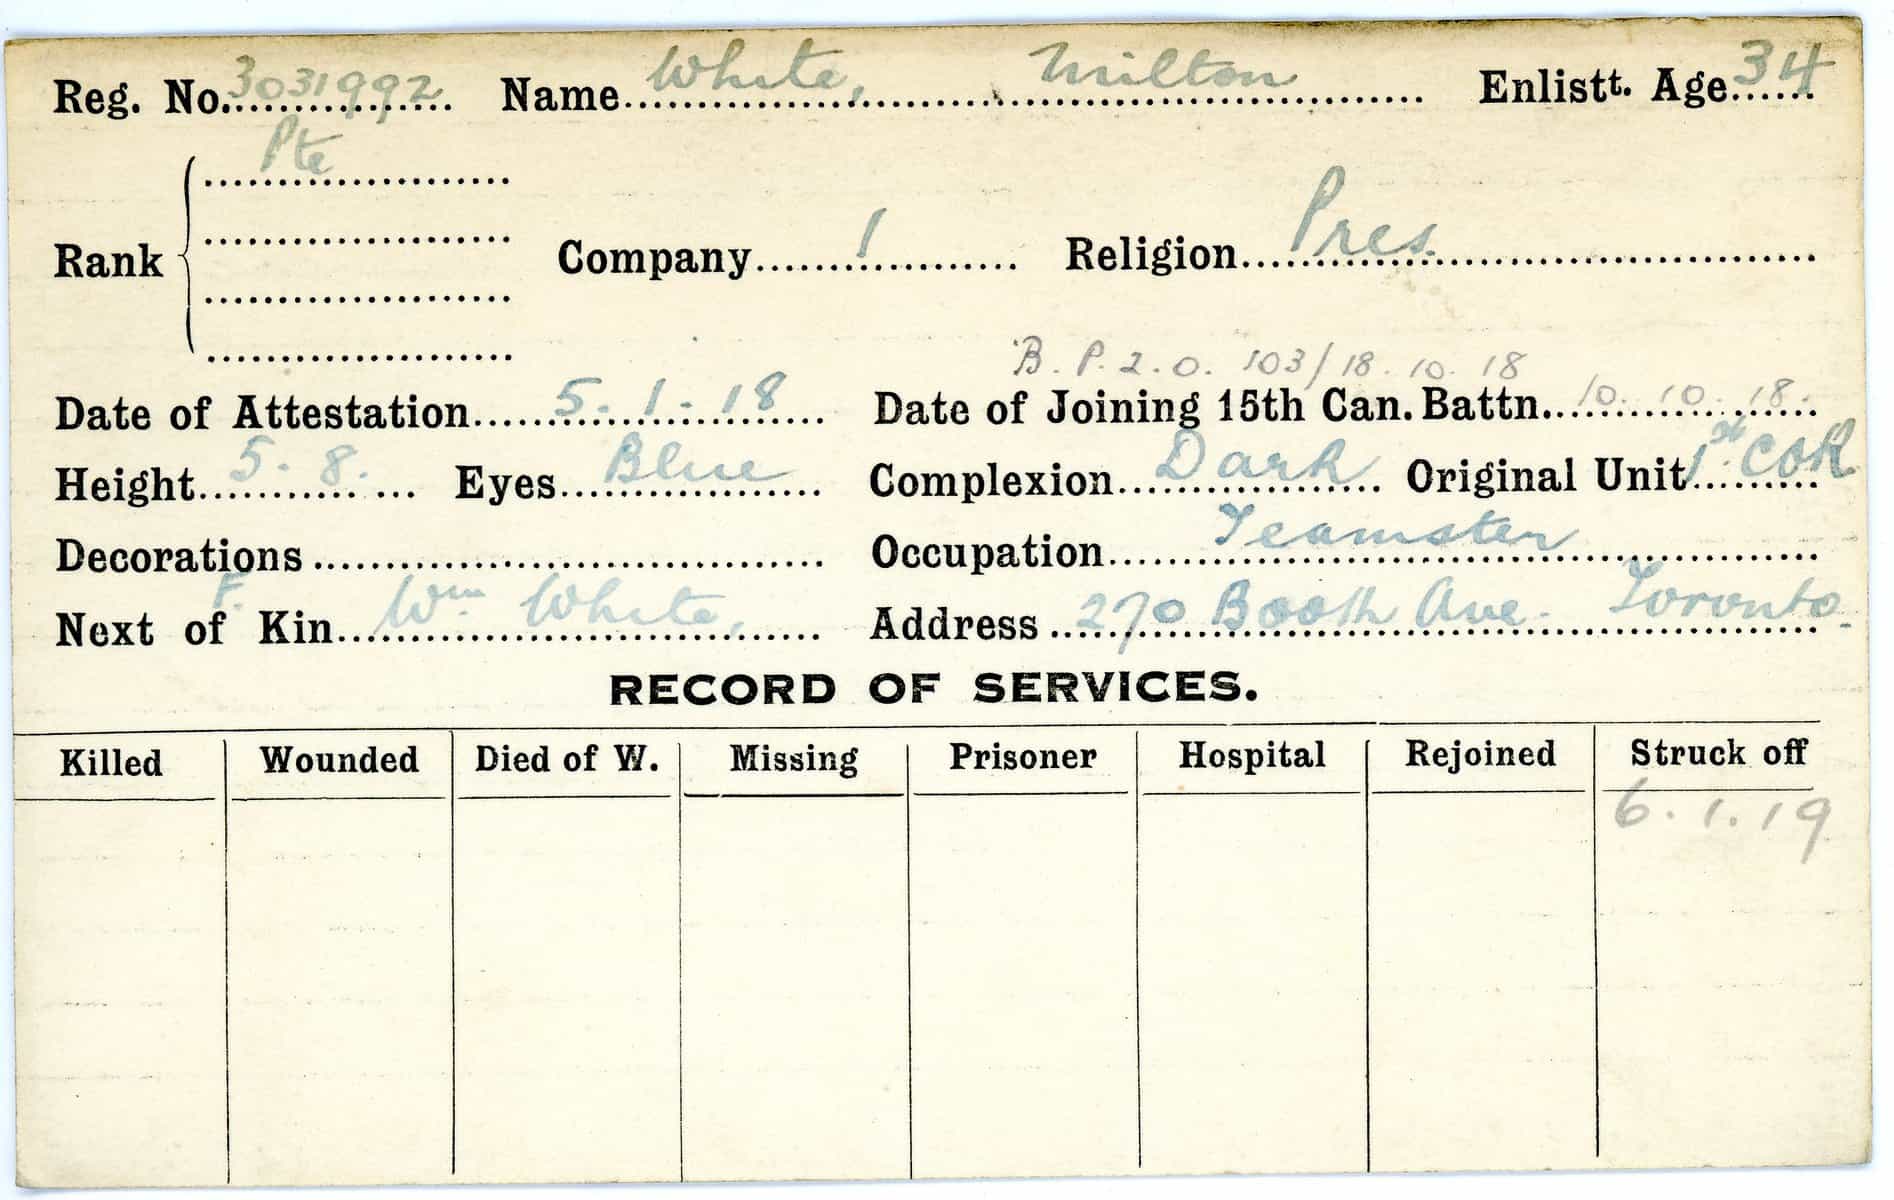 Reg. No. 3031992 Name White, Milton Enlistt. Age 34
Pte
Rank Company 1 Religion Pres.
B. P. 2. O. 103/18. 10. 18
Date of Attestation 5-1-18 Date of Joining 15th Can. Battn. 10. 10. 18.
Height 5. 8. Eyes Blue Complexion Dark Original Unit 1st COR
Decorations Occupation Teamster
F.
Next of Kin Wm White, Address 270 Booth Ave. Toronto.
RECORD OF SERVICES.
Killed Wounded Died of W. Missing Prisoner Hospital Rejoined Struck off
6. 1. 19